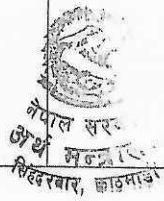 नेपाल सर
अर्थ मन्त्रा
सिंहदरबार, काठमाडौं